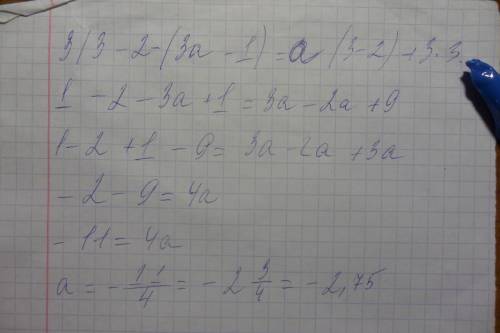 3/3 - 2 - (3a - 1) = a (3-2) + 3·3.
1 - 2 - 3a + 1 = 3a - 2a + 9
1 - 2 + 1 - 9 = 3a - 2a + 3a
- 2 - 9 = 4a
- 11 = 4a
a = - 11/4 = - 2 3/4 = - 2,75